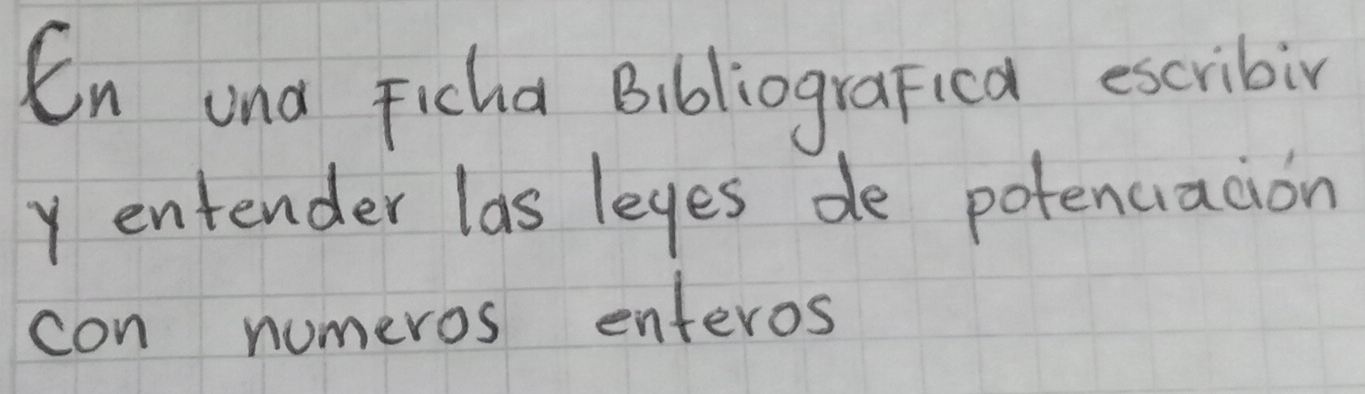 En una Ficha BibliograFica escribir
y entender las leyes de potenciación
con numeros enteros